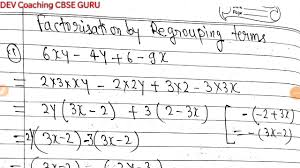 DEV Coaching CBSE GURU
Factorisation by Regrouping terms
① 6xy - 4y + 6 - 9x
= 2x3xxy - 2x2y + 3x2 - 3x3x
= 2y(3x-2) + 3(2-3x) [-(-2+3x)
= -(3x-2)]
= 2y(3x-2) - 3(3x-2)